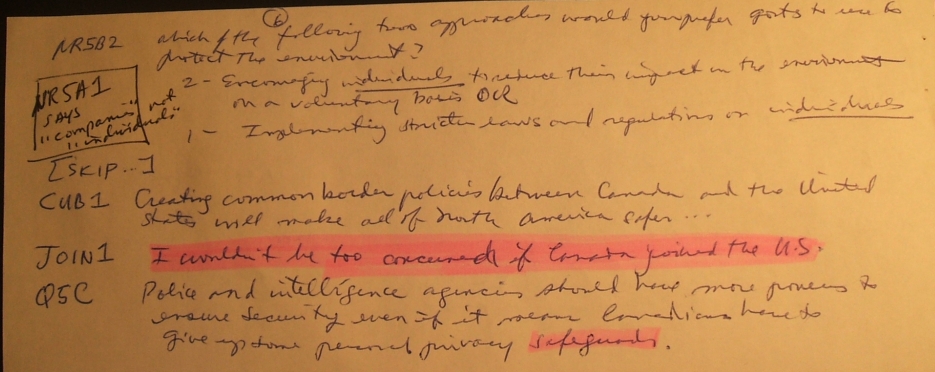 6
NR5B2 which of the following two approaches would you prefer govts to use to
protect the environment?
2- Encouraging individuals to reduce their impact on the environment
on a voluntary basis OR
1- Implementing stricter laws and regulations on individuals
NR5A1
SAYS
"companies" not
"individuals"
[SKIP...]
CUB1 Creating common border policies between Canada and the United
States will make all of North America safer...
JOIN1 I wouldn't be too concerned if Canada joined the U.S.
Q5C Police and intelligence agencies should have more powers to
ensure security even if it means Canadians have to
give up some personal privacy safeguards.